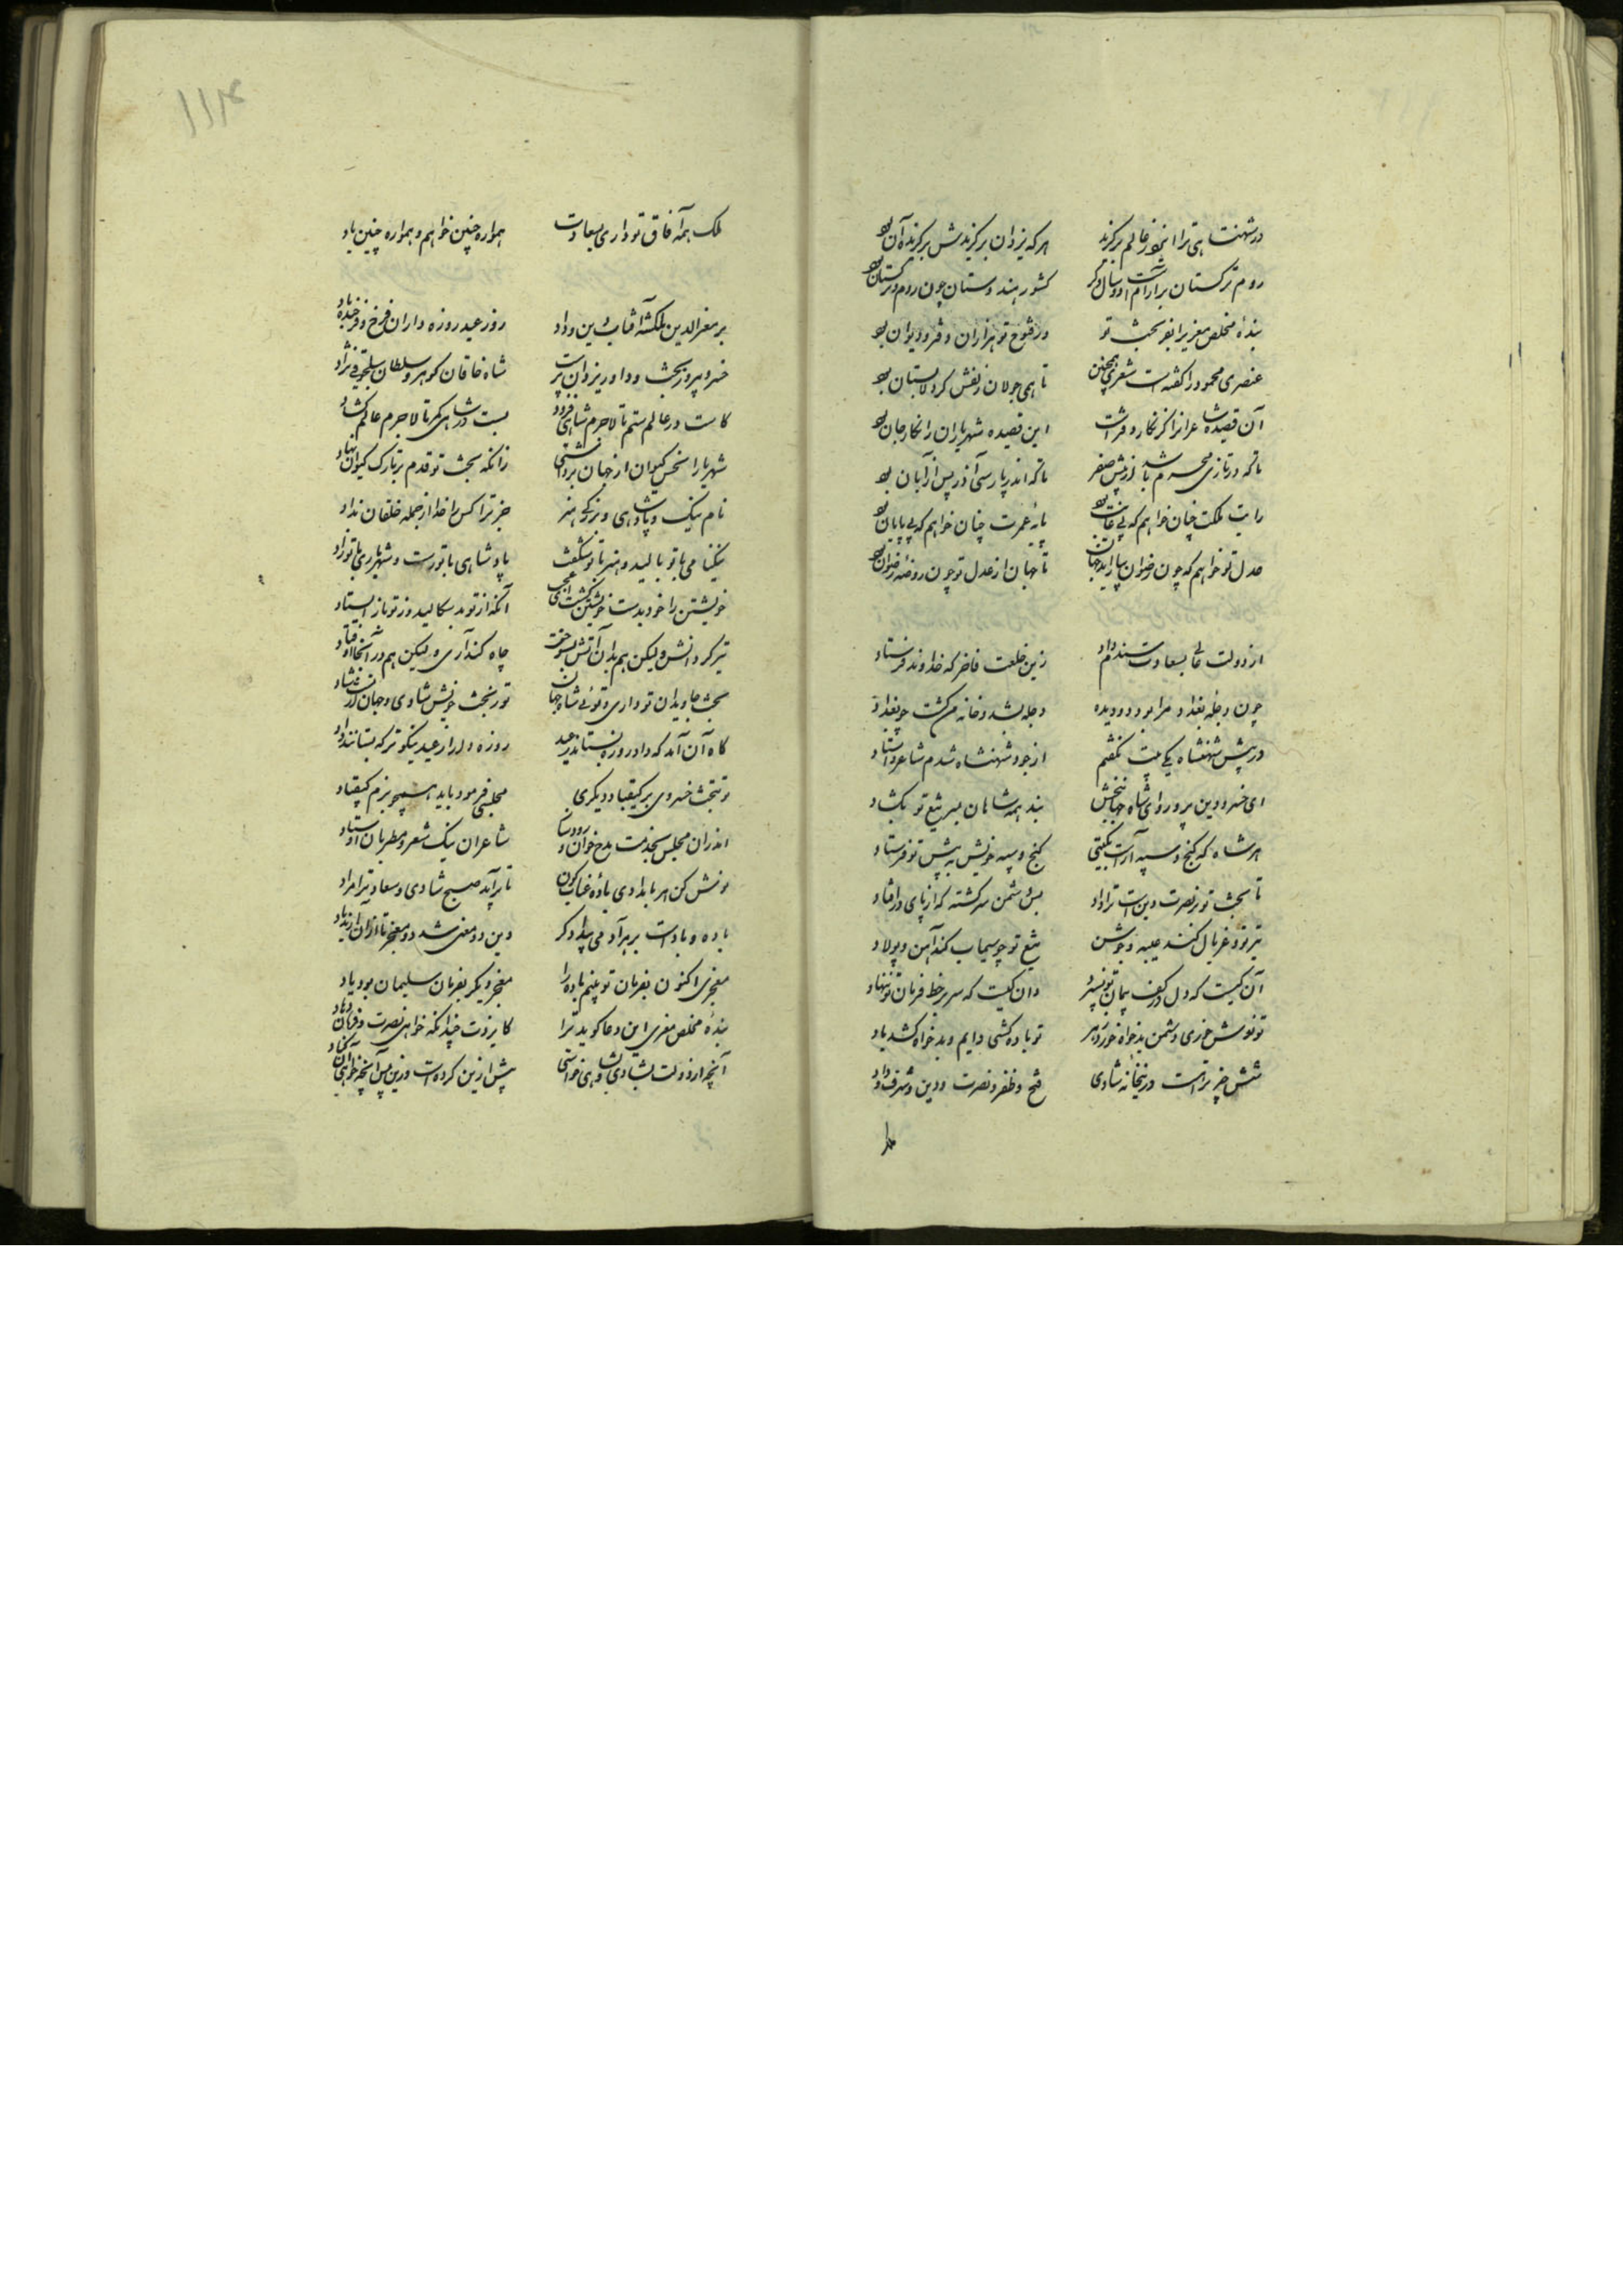 در شهنشاهی ترا ایزد ز عالم برگزید هرکه یزدان برگزیدش برگزیده آن بود
روم ترکستان بیاراست او و سال دگر کشور هندوستان چون روم و ترکستان بود
بندهٔ مخلص معزی را بفر بخت تو در فتوح تو هزاران دفتر و دیوان بود
عنصری محمود را گفته است شعری همچنین تا همی جولان زلفش گرد لالستان بود
آن قصیده شاعرانرا گر نگار دفتر است این قصیده شهریاران را نگار جان بود
تا که در تازی محرم باشد از پیش صفر تا که اندر پارسی آذر پس از آبان بود
رایت ملکت چنان خواهم که بی غایت بود پایهٔ عمرت چنان خواهم که بی پایان بود
عدل تو خواهم که چون رضوان بیاراید جهان تا جهان از عدل تو چون روضهٔ رضوان بود
از دولت عالی بسعادت سندم داد زین خلعت فاخر که خداوند فرستاد
چون دجلهٔ بغداد مرا بود دو دیده دجله بشد و خانه من گشت چو بغداد
در پیش شهنشاه یکی بیت بگفتم از جود شهنشاه شدم شاعر و استاد
ای خسرو دین پرور و ای شاه جهانبخش بند همه شاهان بسر تیغ تو بگشاد
هر شاه که گنج و سپه آراست بگیتی گنج و سپه خویش به پیش تو فرستاد
تا بخت تو بر نصرت دین است ترا داد بس دشمن سرگشته که از پای درافتاد
تیر تو چو غربال کند عیبه و جوشن تیغ تو چو سیماب کند آهن و پولاد
آن کیست که دل در کف پیمان تو نسپرد وان کیست که سر بر خط فرمان تو ننهاد
تو نوش خوری دشمن بدخواه خورد زهر تو باده کشی دایم و بدخواه کشد باد
شش چیز تراست درین خانه شادی فتح و ظفر و نصرت و دین و شرف و داد
ملک
۱۱۴
ملک همه آفاق تو داری بسعادت همواره چنین خواهم و همواره چنین باد
بر معزالدین ملکشه آفتاب دین و داد روز عید روزه داران فرخ و فرخنده باد
خسرو پیروز بخت و داور یزدان پرست شاه خاقان گوهر و سلطان سلجوقی نژاد
کاست در عالم ستم تا لاجرم شاهی فزود بست در شاهی کمر تا لاجرم عالم گشاد
شهریارا نحس کیوان از جهان برداشتی زانکه بخت تو قدم بر تارک کیوان نهاد
نام نیک و پادشاهی و بزرگی و هنر جز ترا کس را خدا از جمله خلقان نداد
نیکنامی با تو بالید و هنر با تو شگفت پادشاهی با تو رست و شهریاری با تو زاد
خویشتن را خود بدست خویشتن کشت ای عجب آنکه از تو بد سگالید و ز تو باز ایستاد
تیز کرد آتش ولیکن هم بدان آتش بسوخت چاه کند آری ولیکن هم در آنجا اوفتاد
بخت جاویدان تو داری و توئی شاه جهان تو ز بخت خویش شادی و جهان از تست شاد
گاه آن آمد که داد روزه بستاند ز عید روزه دار از عید نیکوتر که بستانند داد
تو بتخت خسروی بر کیقباد دیگری مجلسی فرمود باید همچو بزم کیقباد
اندران مجلس بخدمت مدح خوان و رود ساز شاعران نیک شعر و مطربان اوستاد
نوش کن هر بامدادی بادهٔ عناب گون تا برآید صبح شادی و سعادت بامداد
دین دو معنی شد دو معجز تا از آن ایزد بداد
معجزی اکنون بفرمان تو بینم باده را معجز دیگر بفرمان سلیمان بود باد
بندهٔ مخلص معزی این دعا گوید ترا کایزدت چندانکه خواهی نصرت و فرمان دهاد
آنچه از دولت بشادی و شاهی خواستی پیش ازین کرده است و زین پس آنچه خواهی آن کناد